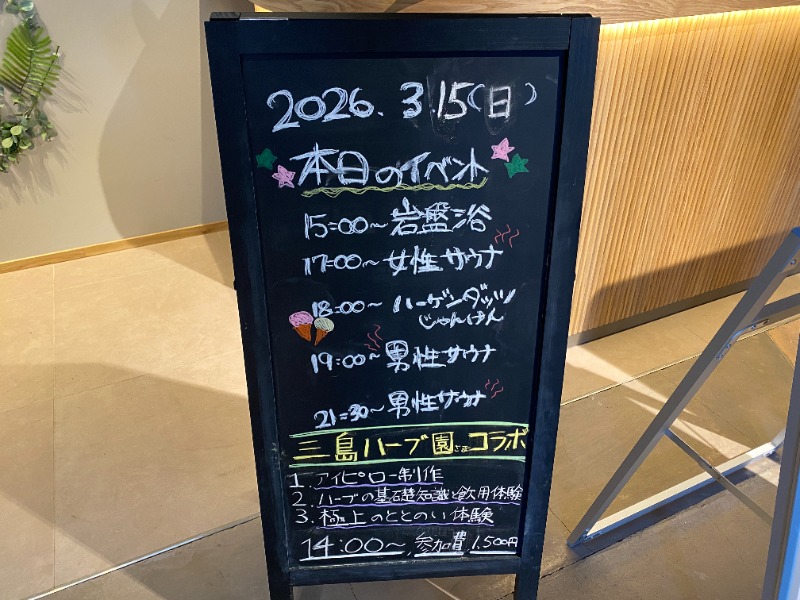 2026. 3 15(日)
本日のイベント
15:00~ 岩盤浴
17:00~ 女性サウナ
18:00~ ハーゲンダッツ
じゃんけん
19:00~ 男性サウナ
21:30~ 男性サウナ
三島ハーブ園さまコラボ
1. アイピロー制作
2. ハーブの基礎知識と飲用体験
3. 極上のととのい体験
14:00~ 参加費 1,500円